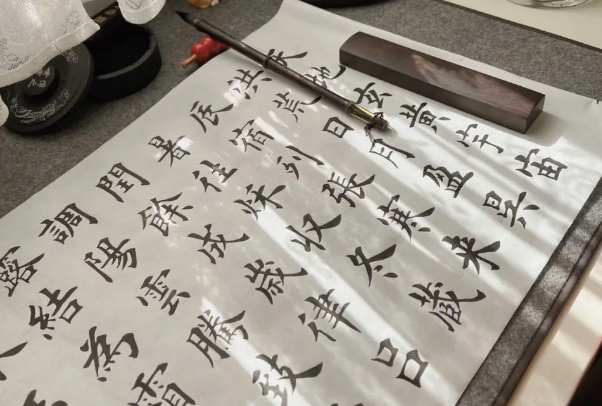 天地玄黄宇宙
洪荒日月盈昃
辰宿列張寒来
暑往秋收冬藏
閏餘成歲律呂
調陽雲騰致
露結為霜